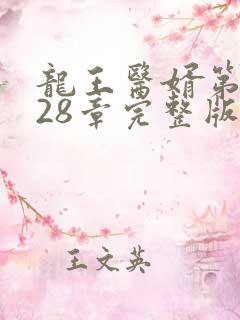 龍王醫婿第
28章完整版
王文英